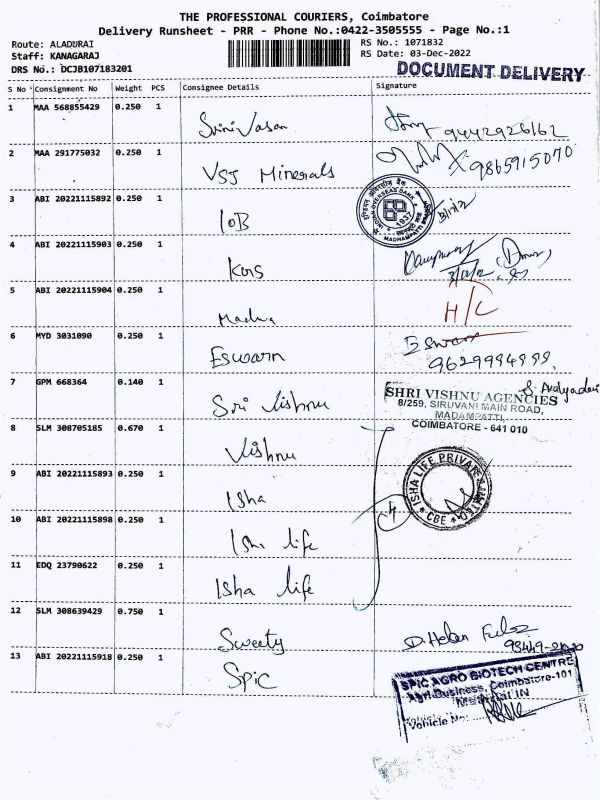 THE PROFESSIONAL COURIERS, Coimbatore
Delivery Runsheet - PRR - Phone No.:0422-3505555 - Page No.:1
Route: ALADURAI
RS No.: 1071832
Staff: KANAGARAJ
RS Date: 03-Dec-2022
DRS No.: DCJB107183201
DOCUMENT DELIVERY
S No Consignment No Weight PCS Consignee Details Signature
1 MAA 568855429 0.250 1
Srinivasan 9442926162
2 MAA 291775032 0.250 1
VSJ Minerals 9865915070
3 ABI 20221115892 0.250 1
IOB 3/12/22
INDIAN OVERSEAS BANK
1937
MADHAMPATTI
4 ABI 20221115903 0.250 1
3/12/22
5 ABI 20221115904 0.250 1
H/C
6 MYD 3031090 0.250 1
Eswarn Eswarn
9629994999
7 GPM 668364 0.140 1
Sri Vishnu
SHRI VISHNU AGENCIES
8/259, SIRUVANI MAIN ROAD,
MADAMPATTI,
COIMBATORE - 641 010
8 SLM 308705185 0.670 1
Vishnu
9 ABI 20221115893 0.250 1
Isha
ISHA LIFE PRIVATE LIMITED
CBE
10 ABI 20221115898 0.250 1
Isha life
4
11 EDQ 23790622 0.250 1
Isha life
12 SLM 308639429 0.750 1
Sweety
13 ABI 20221115918 0.250 1
SPIC
SPIC AGRO BIOTECH CENTRE
Agri Business, Coimbatore-101
IN
Vehicle No: